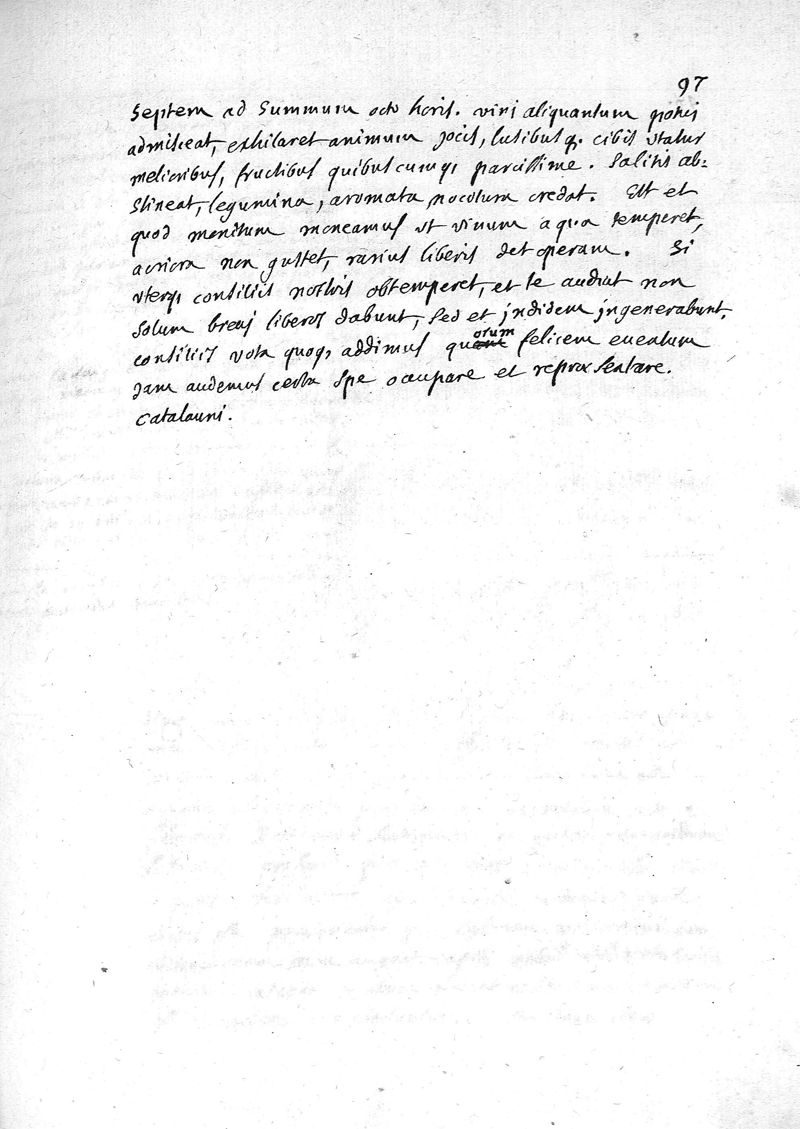 97
Septem ad Summum octo horis. vini aliquantum potui
admisceat, exhilaret animum jocis, lusibusq. cibis vtatur
melioribus, fructibus quibuscumq; parcissime. Salitis ab:
stineat, legumina, aromata nocotura credat. Est et
quod monitum moneamus vt vinum aqua temperet,
acriora non gustet, rarius liberis det operam. Si
vterq; consiliis nostris obtemperet, et te audiat non
Solum brevi liberos dabunt, Sed et jndidem jngenerabunt.
consiliis vota quoq; addimus quorum felicem euentum
jam audemus certa Spe occupare et repræsentare.
Catalauni.